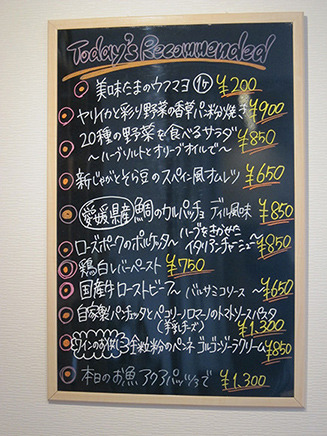 Today's Recommended
美味たまのウフマヨ 1ヶ ¥200
ヤリイカと彩り野菜の香草パン粉焼き ¥900
20種の野菜を食べるサラダ ¥850
〜ハーブソルトとオリーブオイルで〜
新じゃがとそら豆のスペイン風オムレツ ¥650
愛媛県産 鯛のカルパッチョ ディル風味 ¥850
ローズポークのポルケッタ〜ハーブをきかせたイタリアンチャーシュー〜 ¥850
鶏白レバーペースト ¥750
国産牛ローストビーフ〜バルサミコソース〜 ¥650
自家製パンチェッタとペコリーノロマーノのトマトソースパスタ
(羊乳チーズ) ¥1,300
ワインのお供に 全粒粉のペンネ ゴルゴンゾーラクリーム ¥850
本日のお魚 アクアパッツァで ¥1,300